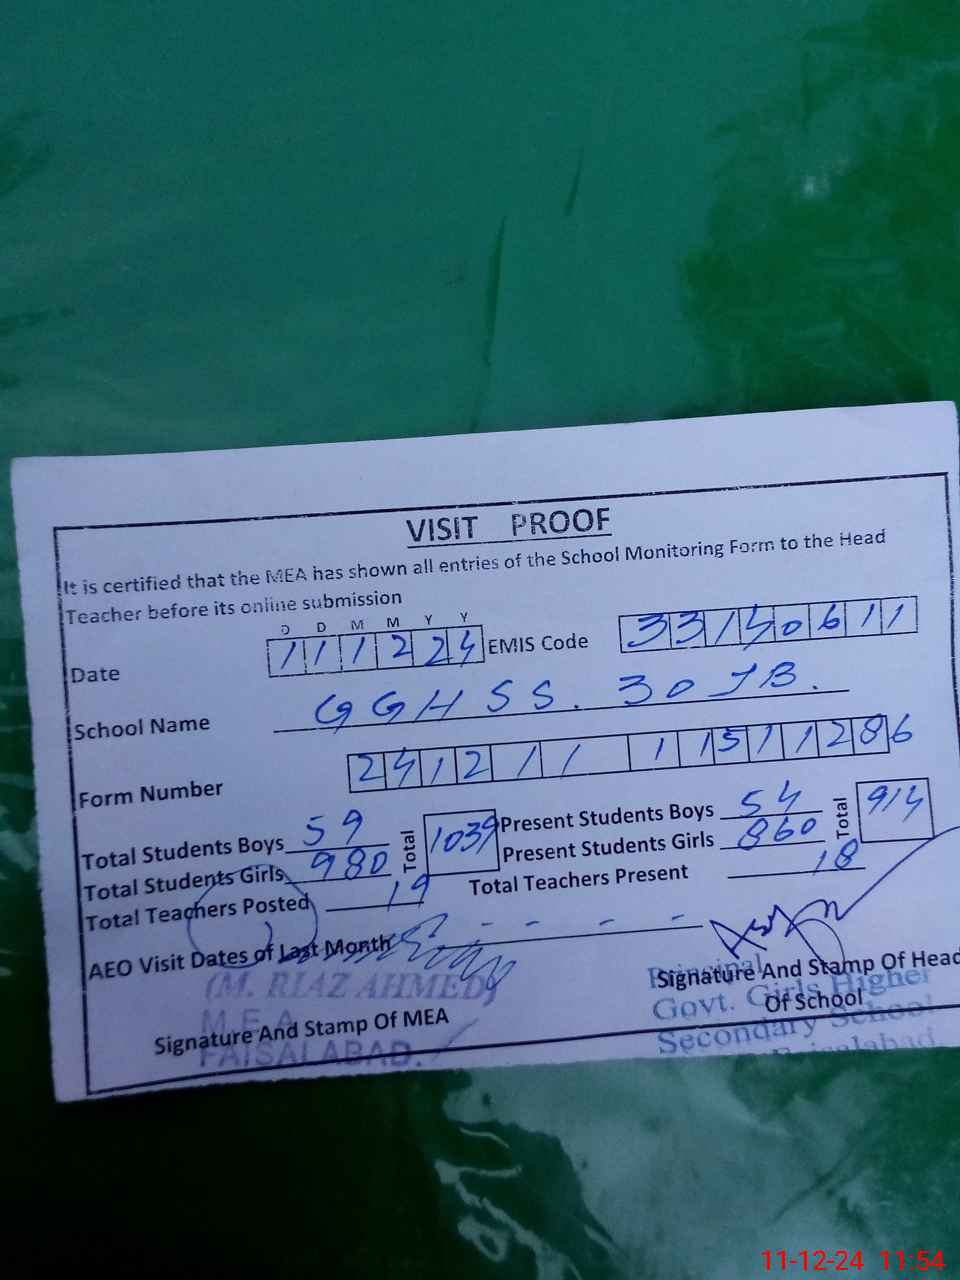 VISIT PROOF
It is certified that the MEA has shown all entries of the School Monitoring Form to the Head
Teacher before its online submission
D D M M Y Y
Date 111224 EMIS Code 33140611
School Name GGHSS. 30 JB.
Form Number 241211 11511286
Total Students Boys 59 Total 1039 Present Students Boys 54 Total 914
Total Students Girls 980 Present Students Girls 860
Total Teachers Posted 19 Total Teachers Present 18
AEO Visit Dates of Last Month - - - -
(M. RIAZ AHMED)
M.E.A
FAISALABAD.
Signature And Stamp Of MEA
Principal
Govt. Girls Higher
Secondary School
Faisalabad
Signature And Stamp Of Head
Of School
11-12-24 11:54